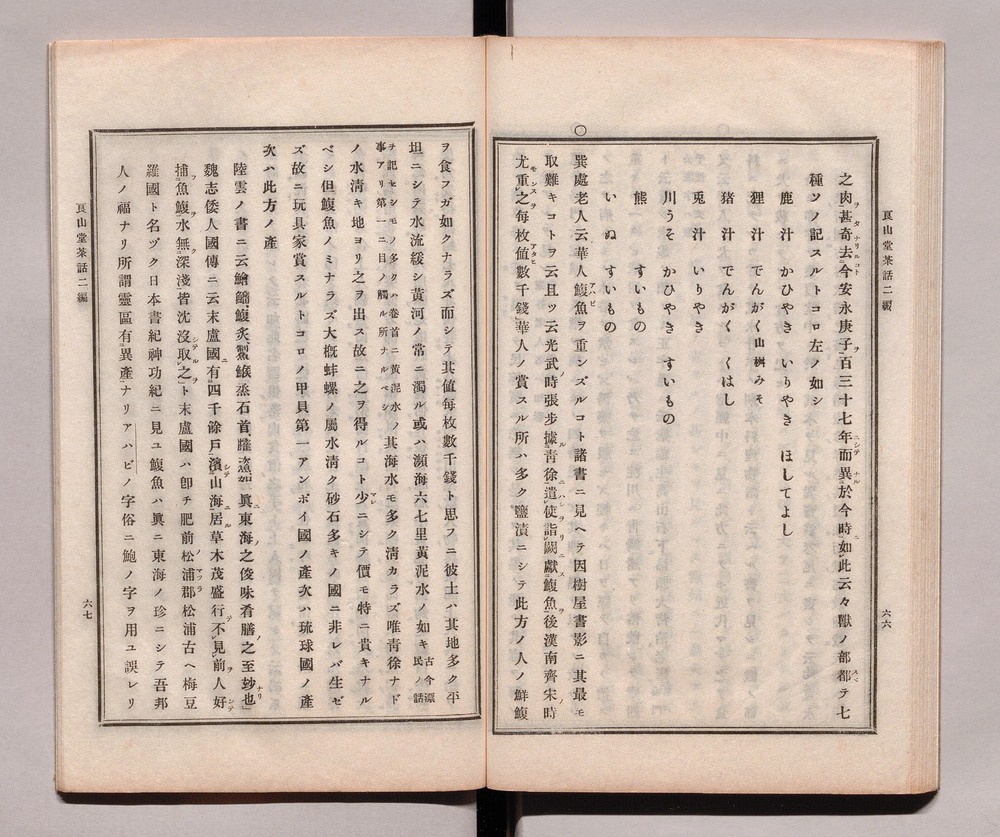 之肉甚奇去今安永庚子百三十七年而異於今時如此云々獸ノ部都テ七
種ソノ記スルトコロ左ノ如シ
鹿汁 かひやき いりやき ほしてよし
狸汁 でんがく山椒みそ
猪汁 でんがく くはし
兎汁 いりやき
川うそ かひやき すいもの
熊 すいもの
いぬ すいもの
○巽處老人云華人鰒魚ヲ重ンズルコト諸書ニ見ヘテ因樹屋書影ニ其最モ
取難キコトヲ云且ツ云光武ノ時張步據靑徐遣使詣闕獻鰒魚後漢南齊宋時
尤重之每枚値數千錢華人ノ賞スル所ハ多ク鹽漬ニシテ此方ノ人ノ鮮鰒
六六
ヲ食フガ如クナラズ而シテ其値每枚數千錢ト思フニ彼土ハ其地多ク平
坦ニシテ水流緩シ黃河ノ常ニ濁ル或ハ瀕海六七里黃泥水ノ如キ古今漂民ノ話
ヲ記セシモノ多クハ卷首ニ黃泥水ノ事アリ第一ニ目ノ觸ル所ナルベシ其海水モ多ク淸カラズ唯靑徐ナド
ノ水淸キ地ヨリ之ヲ出ス故ニ之ヲ得ルコト少ニシテ價モ特ニ貴キナル
ベシ但鰒魚ノミナラズ大槪蚌螺ノ屬水淸ク砂石多キノ國ニ非レバ生ゼ
ズ故ニ玩具家賞スルトコロノ甲貝第一アンボイ國ノ產次ハ琉球國ノ產
次ハ此方ノ產
陸雲ノ書ニ云鱠鰒炙烝石首眞東海之俊味肴膳之至妙也
魏志倭人國傳ニ云末盧國有四千餘戶濱山海居草木茂盛行不見前人好
捕魚鰒水無深淺皆沈沒取之ト末盧國ハ卽チ肥前松浦郡松浦古ヘ梅豆
羅國ト名ヅク日本書紀神功紀ニ見ユ鰒魚ハ眞ニ東海ノ珍ニシテ吾邦
人ノ福ナリ所謂靈區有異產ナリアハビノ字俗ニ鮑ノ字ヲ用ユ誤レリ
茶話二編
六七